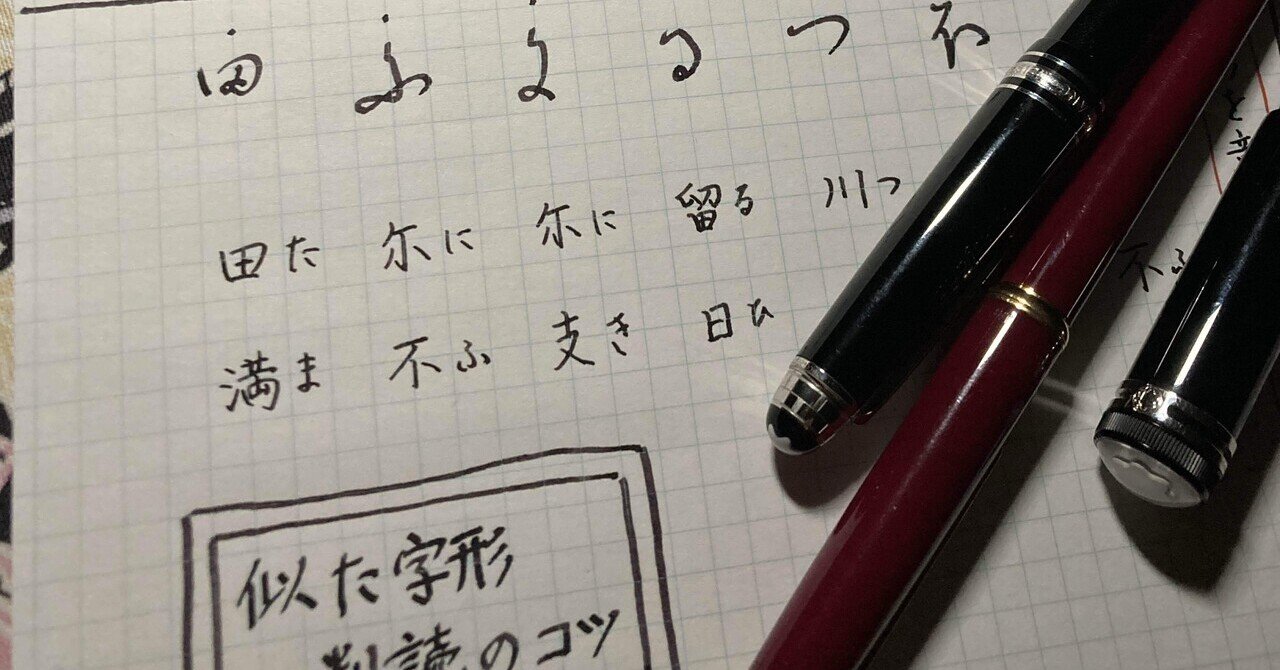 る つ
田た 尔に 尔に 留る 川つ
満ま 不ふ 支き 日ひ
不ふ
似た字形
判読のコツ